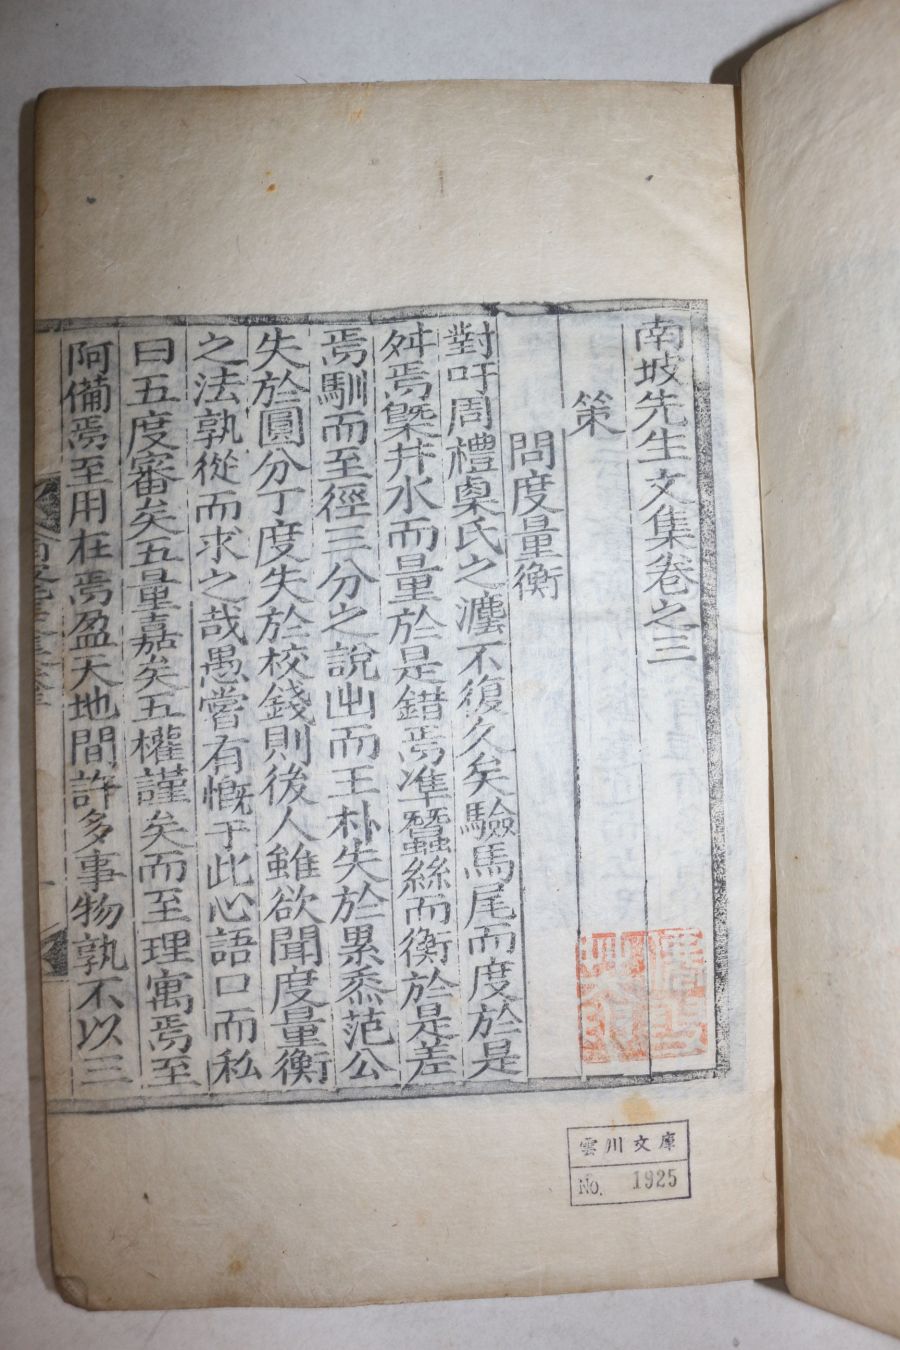 南坡先生文集卷之三
策
問度量衡
對吁周禮㮚氏之灋不復久矣驗馬尾而度於是
舛焉槩井水而量於是錯焉準蠶絲而衡於是差
焉馴而至徑三分之說出而王朴失於累黍范公
失於圓分丁度失於校錢則後人雖欲聞度量衡
之法孰從而求之哉愚嘗有慨于此心語口而私
曰五度審矣五量嘉矣五權謹矣而至理寓焉至
阿備焉至用在焉盈天地間許多事物孰不以三
雲川文庫
No. 1925